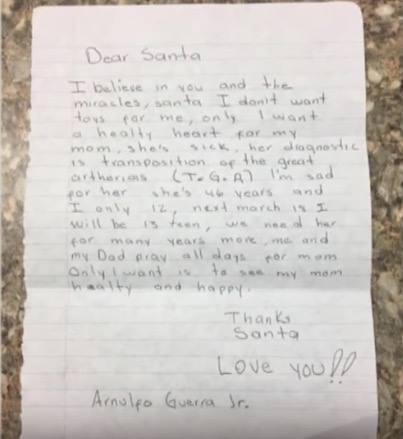 Dear Santa
I believe in you and the
miracles, santa I don't want
toys for me, only I want
a healty heart for my
mom, she's sick, her diagnostic
is transposition of the great
artherias (T.G.A) I'm sad
for her she's 46 years and
I only 12, next march is I
will be 13 teen, we need her
for many years more, me and
my Dad pray all days for mom
Only I want is to see my mom
healty and happy.
Thanks
Santa
Love you!!
Arnulfo Guerra Jr.